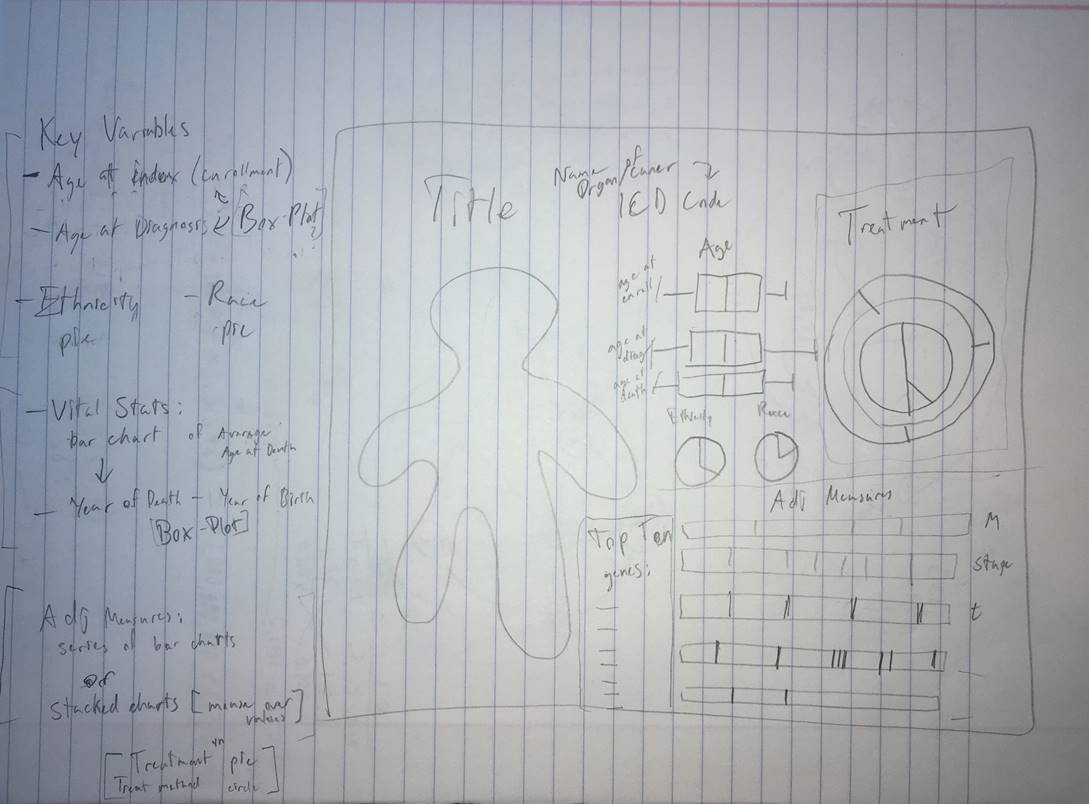 Key Variables
- Age at Index (enrollment)
- Age at Diagnosis [Box-Plot]
- Ethnicity - Race
pie pie
- Vital Stats:
bar chart of Average
Age at Death
- Year of Death - Year of Birth
[Box-Plot]
Adj Measures:
series of bar charts
or
stacked charts [mouse over
values]
[Treatment yn pie
Treat method circle]
Title
Name of
Organ/Cancer
ICD Code
Age
age at
enroll
age at
diag
age at
death
Ethnicity Race
Treatment
Adj Measures
M
stage
t
Top Ten
genes: